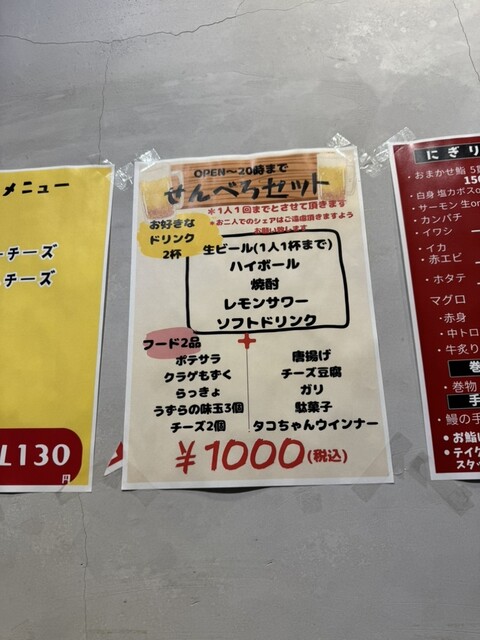 メニュー
ーチーズ
ーチーズ
L130
円
OPEN〜20時まで
せんべろセット
＊1人1回までとさせて頂きます
＊お二人でのシェアはご遠慮頂きますよう
お願い致します
お好きな
ドリンク
2杯
生ビール(1人1杯まで)
ハイボール
焼酎
レモンサワー
ソフトドリンク
+
フード2品
ポテサラ
クラゲもずく
らっきょ
うずらの味玉3個
チーズ2個
唐揚げ
チーズ豆腐
ガリ
駄菓子
タコちゃんウインナー
¥1000(税込)
にぎり
・おまかせ鮨 5貫
150
・白身 塩カボスo
・サーモン 生or
・カンパチ
・イワシ
・イカ
・赤エビ
・ホタテ
マグロ
・赤身
・中トロ
・牛炙り
巻
・巻物
手
・鰻の手
●お鮨に
●テイク
スタッ